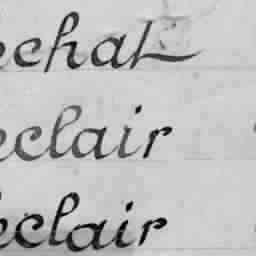 echal
eclair
eclair